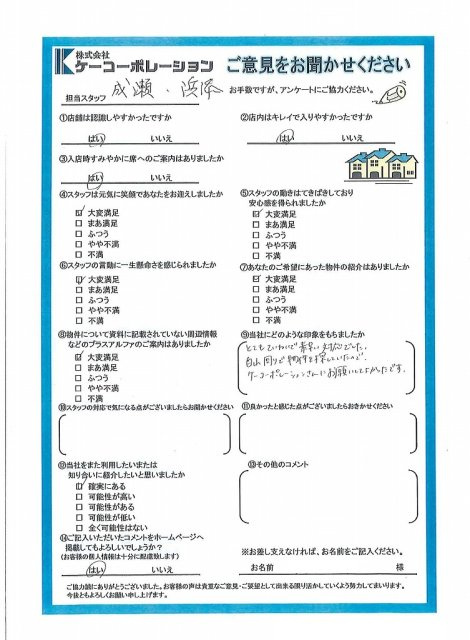 株式会社
ケーコーポレーション
ご意見をお聞かせください
担当スタッフ 成瀬・浜本
お手数ですが、アンケートにご協力ください。
①店舗は認識しやすかったですか
はい いいえ
②店内はキレイで入りやすかったですか
はい いいえ
③入店時すみやかに席へのご案内はありましたか
はい いいえ
④スタッフは元気に笑顔であなたをお迎えしましたか
大変満足
まあ満足
ふつう
やや不満
不満
⑤スタッフの動きはてきぱきしており
安心感を得られましたか
大変満足
まあ満足
ふつう
やや不満
不満
⑥スタッフの言動に一生懸命さを感じられましたか
大変満足
まあ満足
ふつう
やや不満
不満
⑦あなたのご希望にあった物件の紹介はありましたか
大変満足
まあ満足
ふつう
やや不満
不満
⑧物件について資料に記載されていない周辺情報
などのプラスアルファのご案内はありましたか
大変満足
まあ満足
ふつう
やや不満
不満
⑨当社にどのような印象をもちましたか
とてもていねいで素早い対応でした。
白山周りで物件を探していたので、
ケーコーポレーションさんにお願いしてよかったです。
⑩スタッフの対応で気になる点がございましたらお聞かせください
⑪良かったと感じた点がございましたらおきかせください
⑫当社をまた利用したいまたは
知り合いに紹介したいと思いましたか
確実にある
可能性が高い
可能性がある
可能性が低い
全く可能性はない
⑬その他のコメント
⑭ご記入いただいたコメントをホームページへ
掲載してもよろしいでしょうか？
(お客様の個人情報は十分に配慮致します)
はい いいえ
※お差し支えなければ、お名前をご記入ください。
お名前 様
ご協力誠にありがとうございました。お客様の声は貴重なご意見・ご要望として出来る限り活かしていくよう努力してまいります。
今後ともよろしくお願い申し上げます。